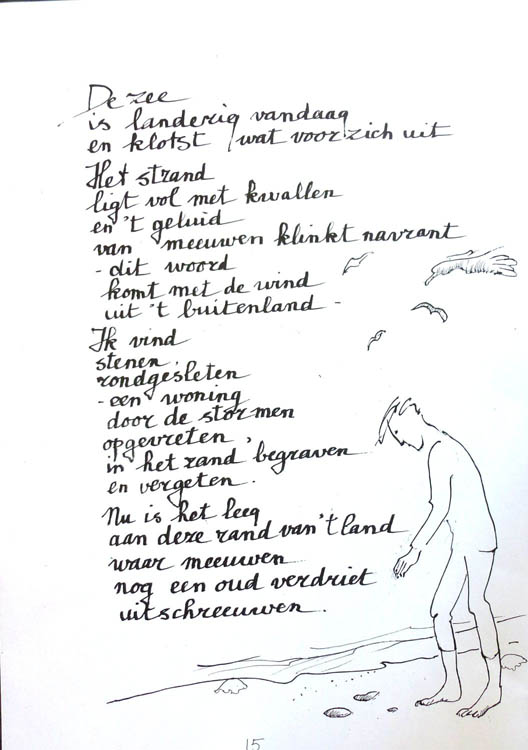 De zee
is landerig vandaag
en klotst wat voor zich uit
Het strand
ligt vol met kwallen
en 't geluid
van meeuwen klinkt navrant
- dit woord
komt met de wind
uit 't buitenland -
Ik vind
stenen,
rondgesleten
- een woning
door de stormen
opgevreten,
in het zand begraven
en vergeten.
Nu is het leeg
aan deze rand van 't land
waar meeuwen
nog een oud verdriet
uitschreeuwen.
15